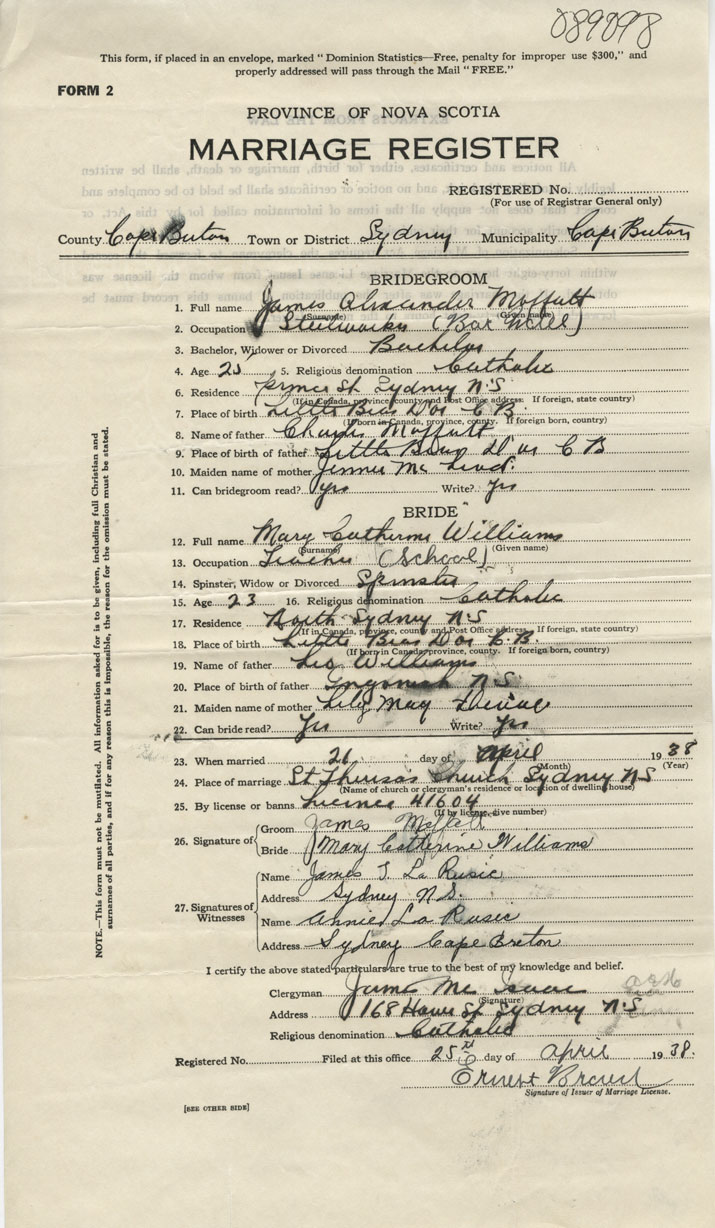 089098
This form, if placed in an envelope, marked "Dominion Statistics—Free, penalty for improper use $300," and
properly addressed will pass through the Mail "FREE."
FORM 2
PROVINCE OF NOVA SCOTIA
MARRIAGE REGISTER
REGISTERED No.
(For use of Registrar General only)
County Cape Breton Town or District Sydney Municipality Cape Breton
BRIDEGROOM
1. Full name James Alexander Moffatt
(Surname) (Given name)
2. Occupation Steelworks (Bar Mill)
3. Bachelor, Widower or Divorced Bachelor
4. Age 25 5. Religious denomination Catholic
6. Residence Prince St Sydney N.S
(If in Canada, province, county and Post Office address. If foreign, state country)
7. Place of birth Little Bras D'or C.B.
(If born in Canada, province, county. If foreign born, country)
8. Name of father Charles Moffatt
9. Place of birth of father Little Bras D'or C B
10. Maiden name of mother Jennie Mc Leod.
11. Can bridegroom read? yes Write? yes
BRIDE
12. Full name Mary Catherine Williams
(Surname) (Given name)
13. Occupation Teacher (School)
14. Spinster, Widow or Divorced Spinster
15. Age 23 16. Religious denomination Catholic
17. Residence North Sydney N.S
(If in Canada, province, county and Post Office address. If foreign, state country)
18. Place of birth Little Bras D'or C.B.
(If born in Canada, province, county. If foreign born, country)
19. Name of father Leo Williams
20. Place of birth of father Ingonish N.S.
21. Maiden name of mother Lily May
22. Can bride read? Yes Write? Yes
23. When married 21 day of April 1938
(Month) (Year)
24. Place of marriage St Theresa's Church Sydney NS
(Name of church or clergyman's residence or location of dwelling house)
25. By license or banns License 41604
(If by license, give number)
26. Signature of Groom James Moffatt
Bride Mary Catherine Williams
27. Signatures of Witnesses
Name James J. La Rusic
Address Sydney N.S.
Name Annie La Rusic
Address Sydney Cape Breton
I certify the above stated particulars are true to the best of my knowledge and belief.
Clergyman James Mc Isaac
(Signature)
Address 168 Sydney N.S
Religious denomination Catholic
Registered No. Filed at this office 25 day of April 1938.
Ernest
Signature of Issuer of Marriage License.
[SEE OTHER SIDE]
NOTE.—This form must not be mutilated. All information asked for is to be given, including full Christian and
surnames of all parties, and if for any reason this is impossible, the reason for the omission must be stated.